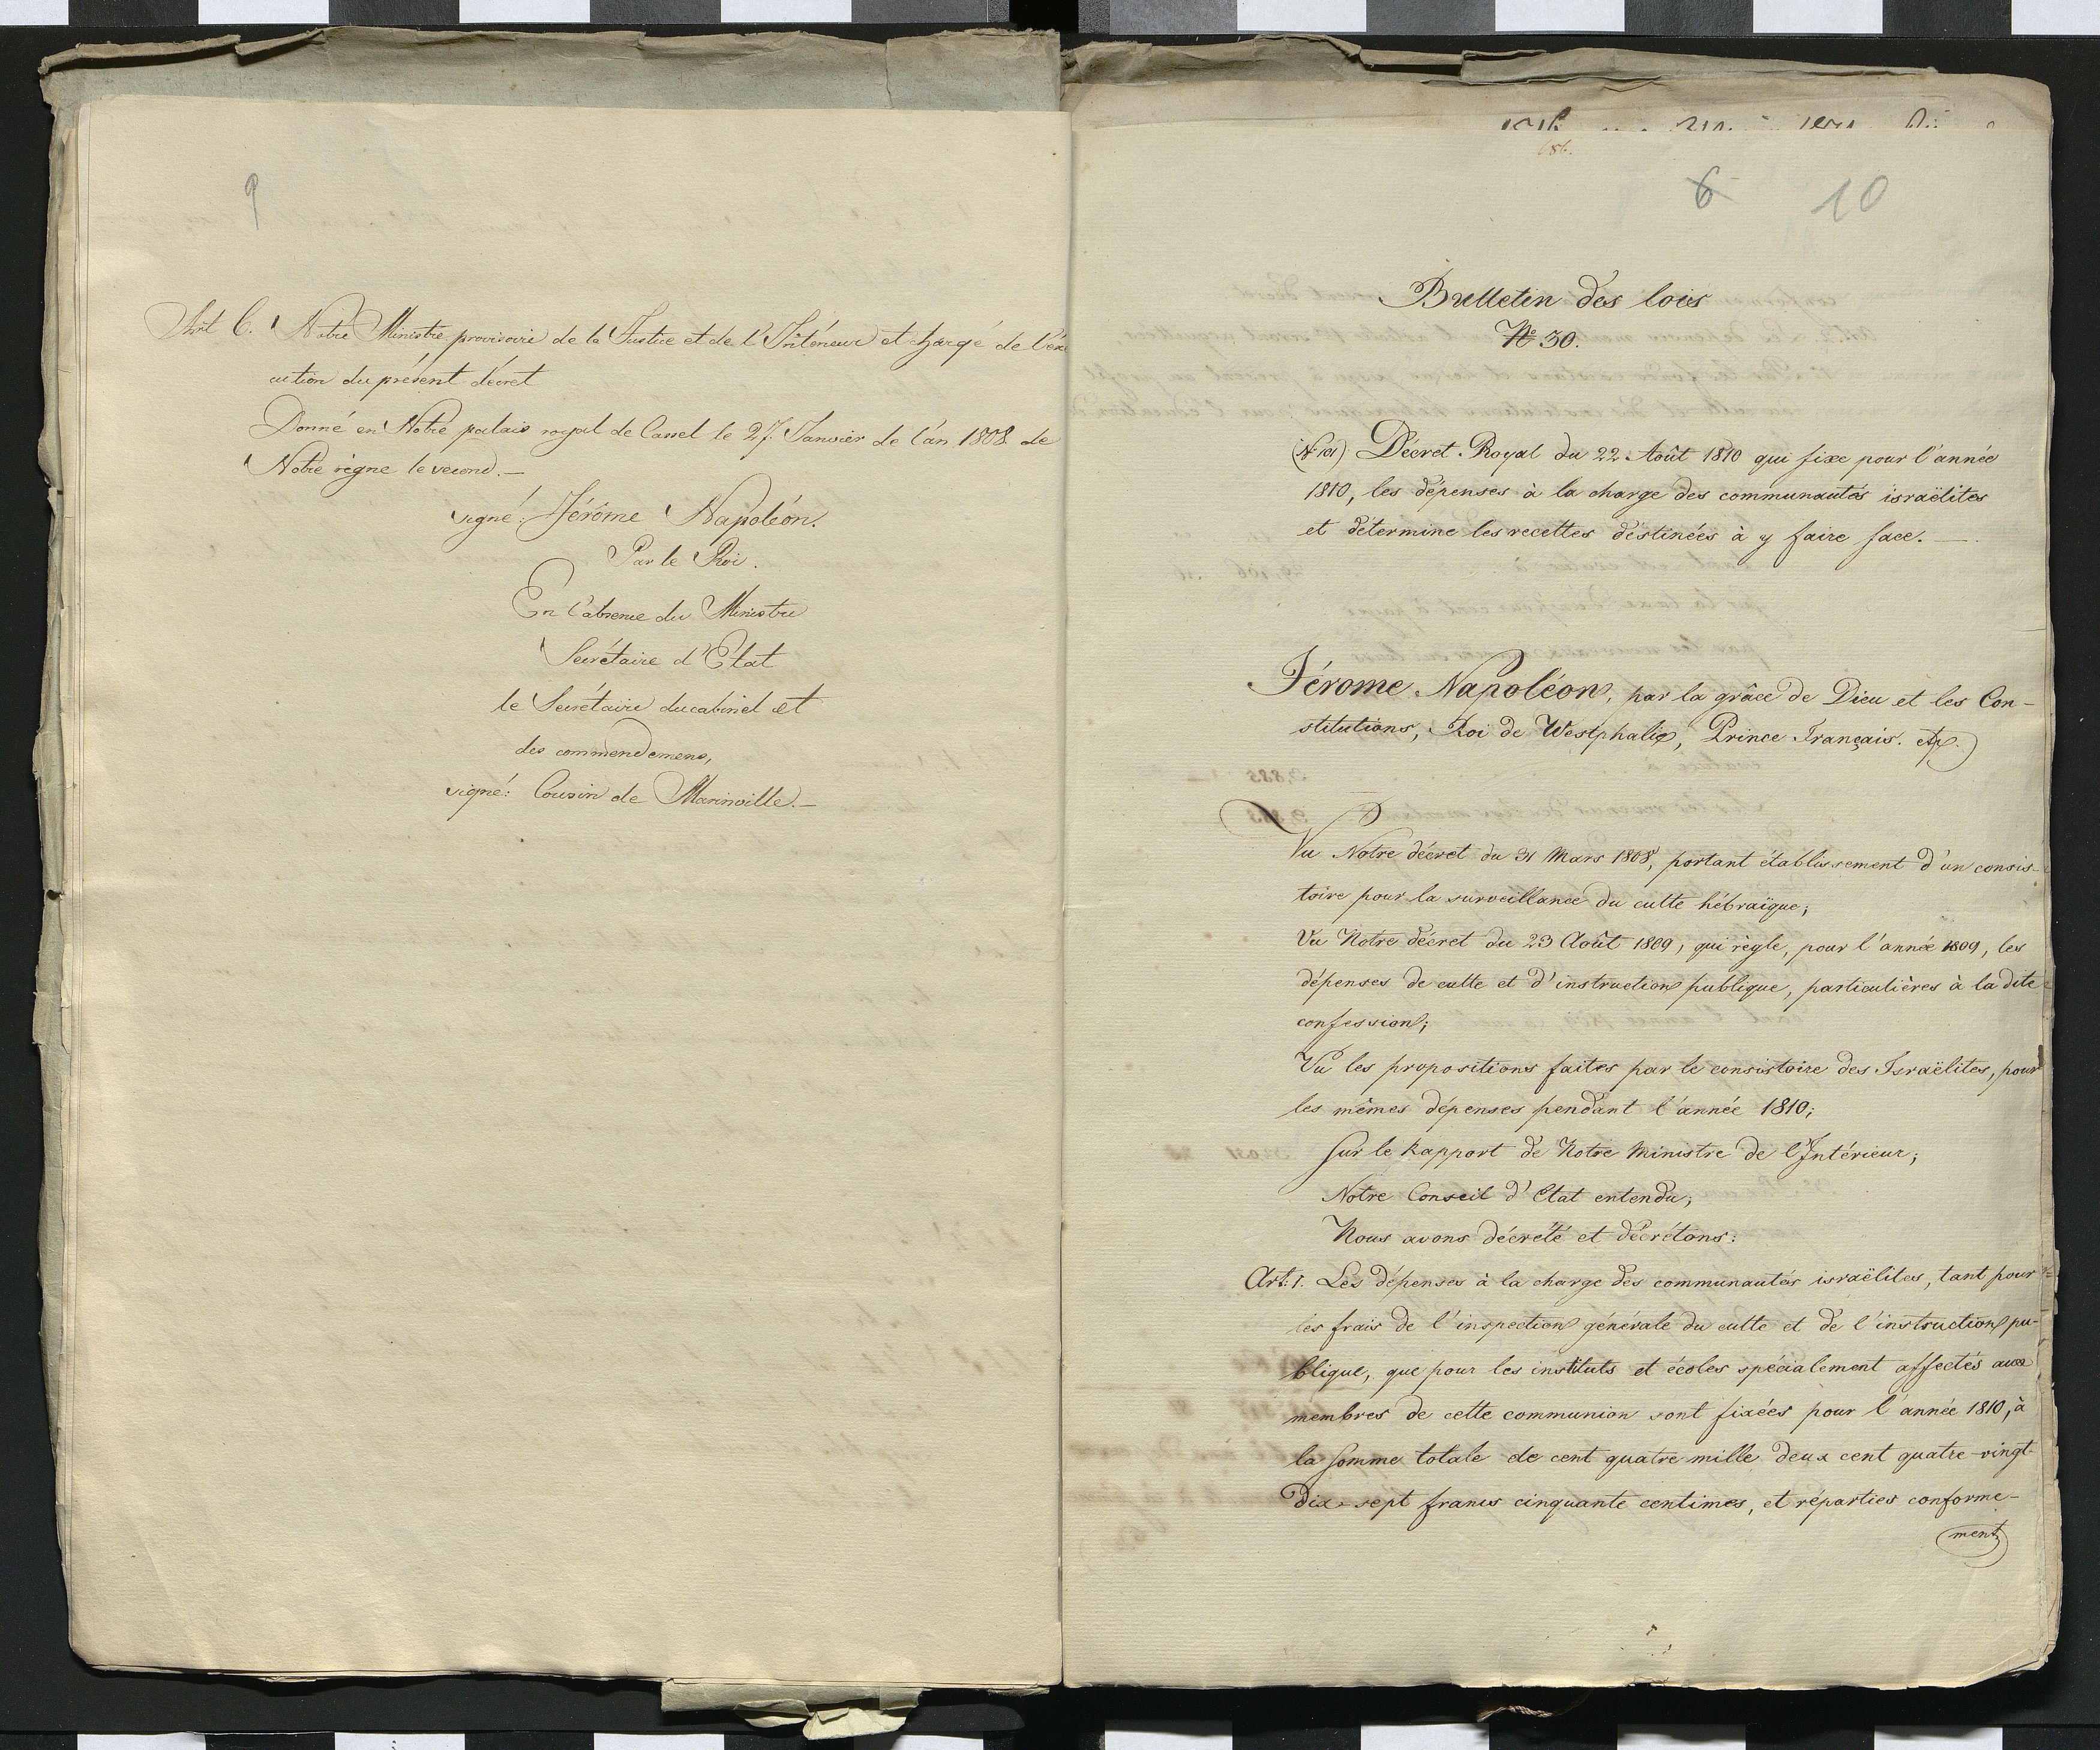 9
Art 6. Notre Ministre provisoire de la Justice et de l'Intérieur et chargé de l'éxé
cution du présent décret
Donné en Notre palais royal de Cassel le 27. Janvier de l'an 1808 de
Notre règne le second.—
signé: Jérôme Napoléon.
Par le Roi.
En l'absence du Ministre
Secrétaire d'État
le Secrétaire du cabinet et
des commendemens,
signé: Cousin de Marinville.—
6 10
Bulletin des lois
No 30.
(No 101) Décret Royal du 22 Août 1810 qui fixe pour l'année
1810, les dépenses à la charge des communautés israëlites
et détermine les recettes déstinées à y faire face.—
Jérome Napoléon, par la grâce de Dieu et les Con-
stitutions, Roi de Westphalie, Prince Français. etc.
Vu Notre décret du 31 Mars 1808, portant établissement d'un consis-
toire pour la surveillance du culte hébraïque;
Vu Notre décret du 23 Août 1809, qui règle, pour l'année 1809, les
dépenses de culte et d'instruction publique, particulières à la dite
confession;
Vu les propositions faites par le consistoire des Israëlites, pour
les mêmes dépenses pendant l'année 1810;
Sur le Rapport de Notre Ministre de l'Intérieur;
Notre Conseil d'Etat entendu;
Nous avons décrété et décrétons:
Art: 1. Les dépenses à la charge des communautés israëlites, tant pour
les frais de l'inspection générale du culte et de l'instruction pu-
blique, que pour les instituts et écoles spécialement affectés aux
membres de cette communion sont fixées pour l'année 1810, à
la somme totale de cent quatre mille deux cent quatre-vingt-
dix-sept francs cinquante centimes, et réparties conforme-
ment